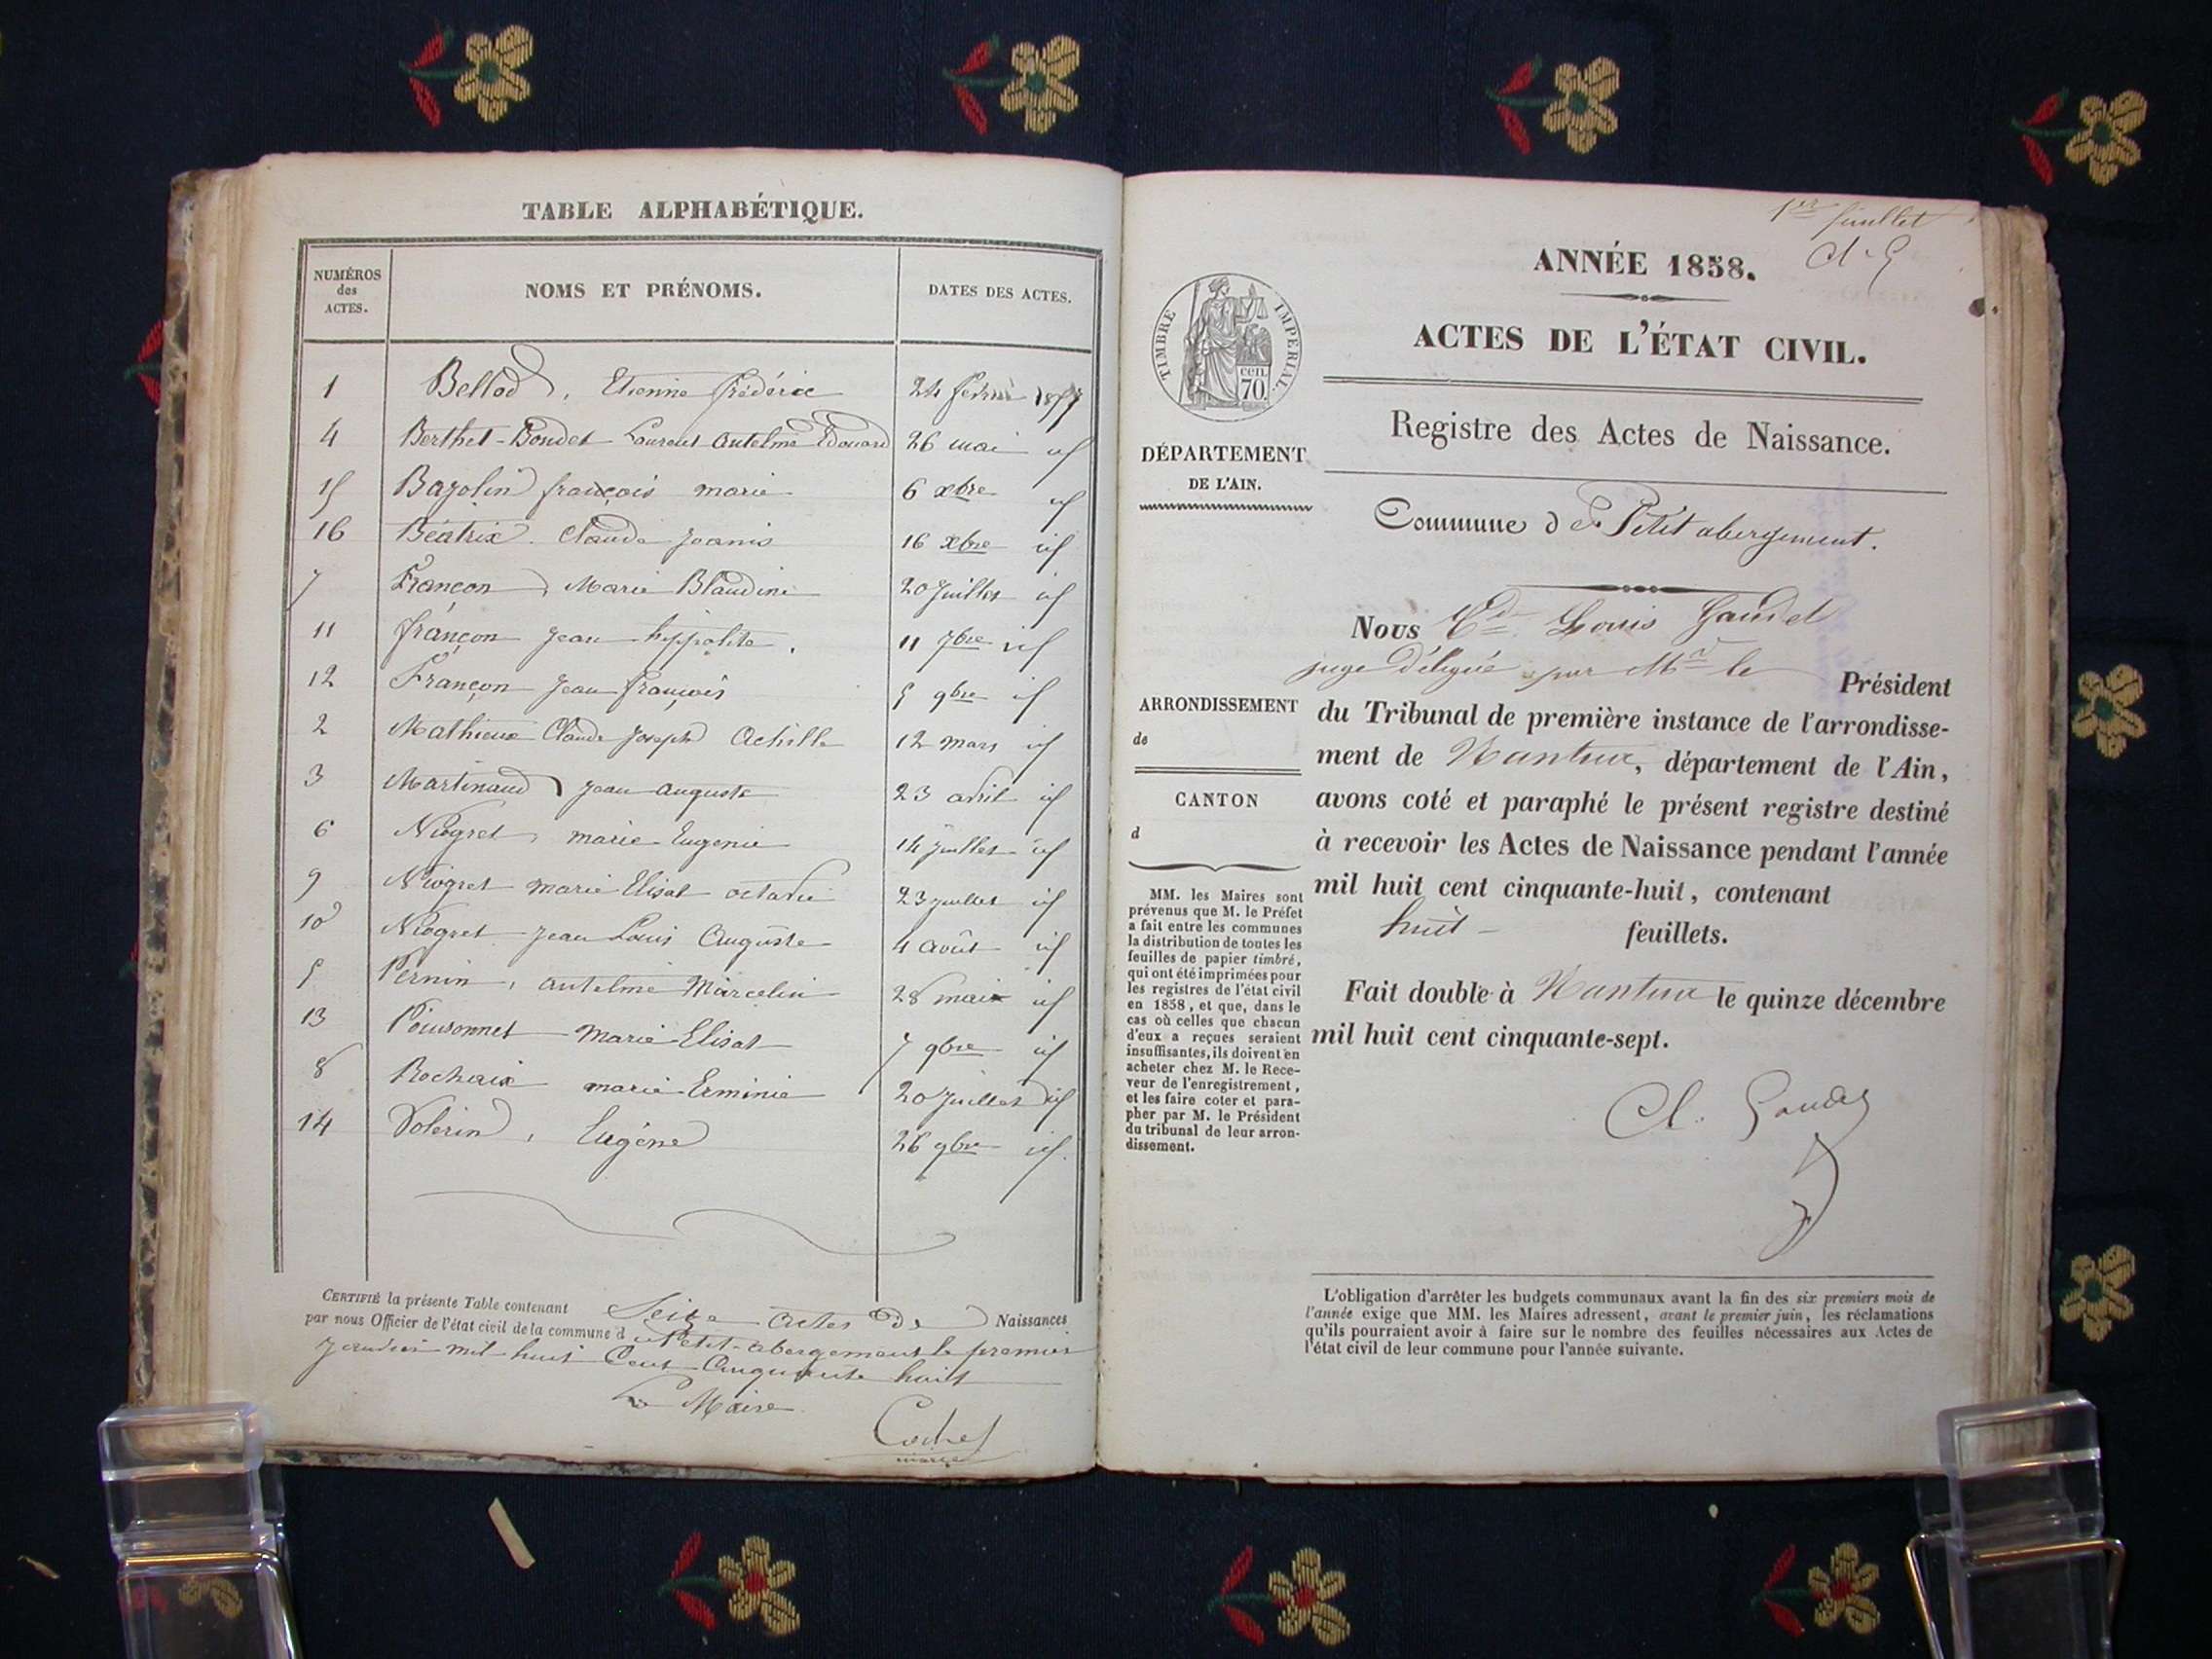 TABLE ALPHABÉTIQUE.
NUMÉROS
des
ACTES.
NOMS ET PRÉNOMS.
DATES DES ACTES.
1 Bellod, Etienne frédéric 24 février 1857
4 Berthet-Bondet Laurent Antelme Edouard 26 mai id
15 Bazolin françois marie 6 xbre id
16 Béatrix Claude Joanis 16 xbre id
7 Françon, Marie Blandine 20 Juillet id
11 françon Jean hippolite. 11 7bre id
12 Françon Jean françois 5 9bre id
2 Mathieux Claude Joseph Achille 12 mars id
3 Martinaud Jean auguste 23 avril id
6 Niogret, marie Eugenie 14 Juillet id
9 Niogret marie Elisat octavie 23 juillet id
10 Niogret Jean Louis Auguste 4 août id
5 Pernin, antelme Marcelin 28 mai id
13 marie Elisat 7 9bre id
8 Rochaix marie Erminie 20 Juillet id
14 Volerin, Eugène 26 9bre id.
CERTIFIÉ la présente Table contenant Seize actes de Naissances
par nous Officier de l'état civil de la commune d e Petit-abergement le premier
Janvier mil huit Cent Cinquante huit
Le Maire
Cochet
maire
1er feuillet
ANNÉE 1858.
ACTES DE L'ÉTAT CIVIL.
TIMBRE IMPÉRIAL.
70. cen.
Registre des Actes de Naissance.
DÉPARTEMENT
DE L'AIN.
Commune de Petit abergement.
Nous Cd Louis Gaudet
juge délégué par Mr le Président
ARRONDISSEMENT
de
du Tribunal de première instance de l'arrondisse-
ment de Nantua, département de l'Ain,
CANTON
d
avons coté et paraphé le présent registre destiné
à recevoir les Actes de Naissance pendant l'année
mil huit cent cinquante-huit, contenant
huit feuillets.
Fait double à Nantua le quinze décembre
mil huit cent cinquante-sept.
MM. les Maires sont
prévenus que M. le Préfet
a fait entre les communes
la distribution de toutes les
feuilles de papier timbré,
qui ont été imprimées pour
les registres de l'état civil
en 1858, et que, dans le
cas où celles que chacun
d'eux a reçues seraient
insuffisantes, ils doivent en
acheter chez M. le Rece-
veur de l'enregistrement,
et les faire coter et para-
pher par M. le Président
du tribunal de leur arron-
dissement.
L'obligation d'arrêter les budgets communaux avant la fin des six premiers mois de
l'année exige que MM. les Maires adressent, avant le premier juin, les réclamations
qu'ils pourraient avoir à faire sur le nombre des feuilles nécessaires aux Actes de
l'état civil de leur commune pour l'année suivante.